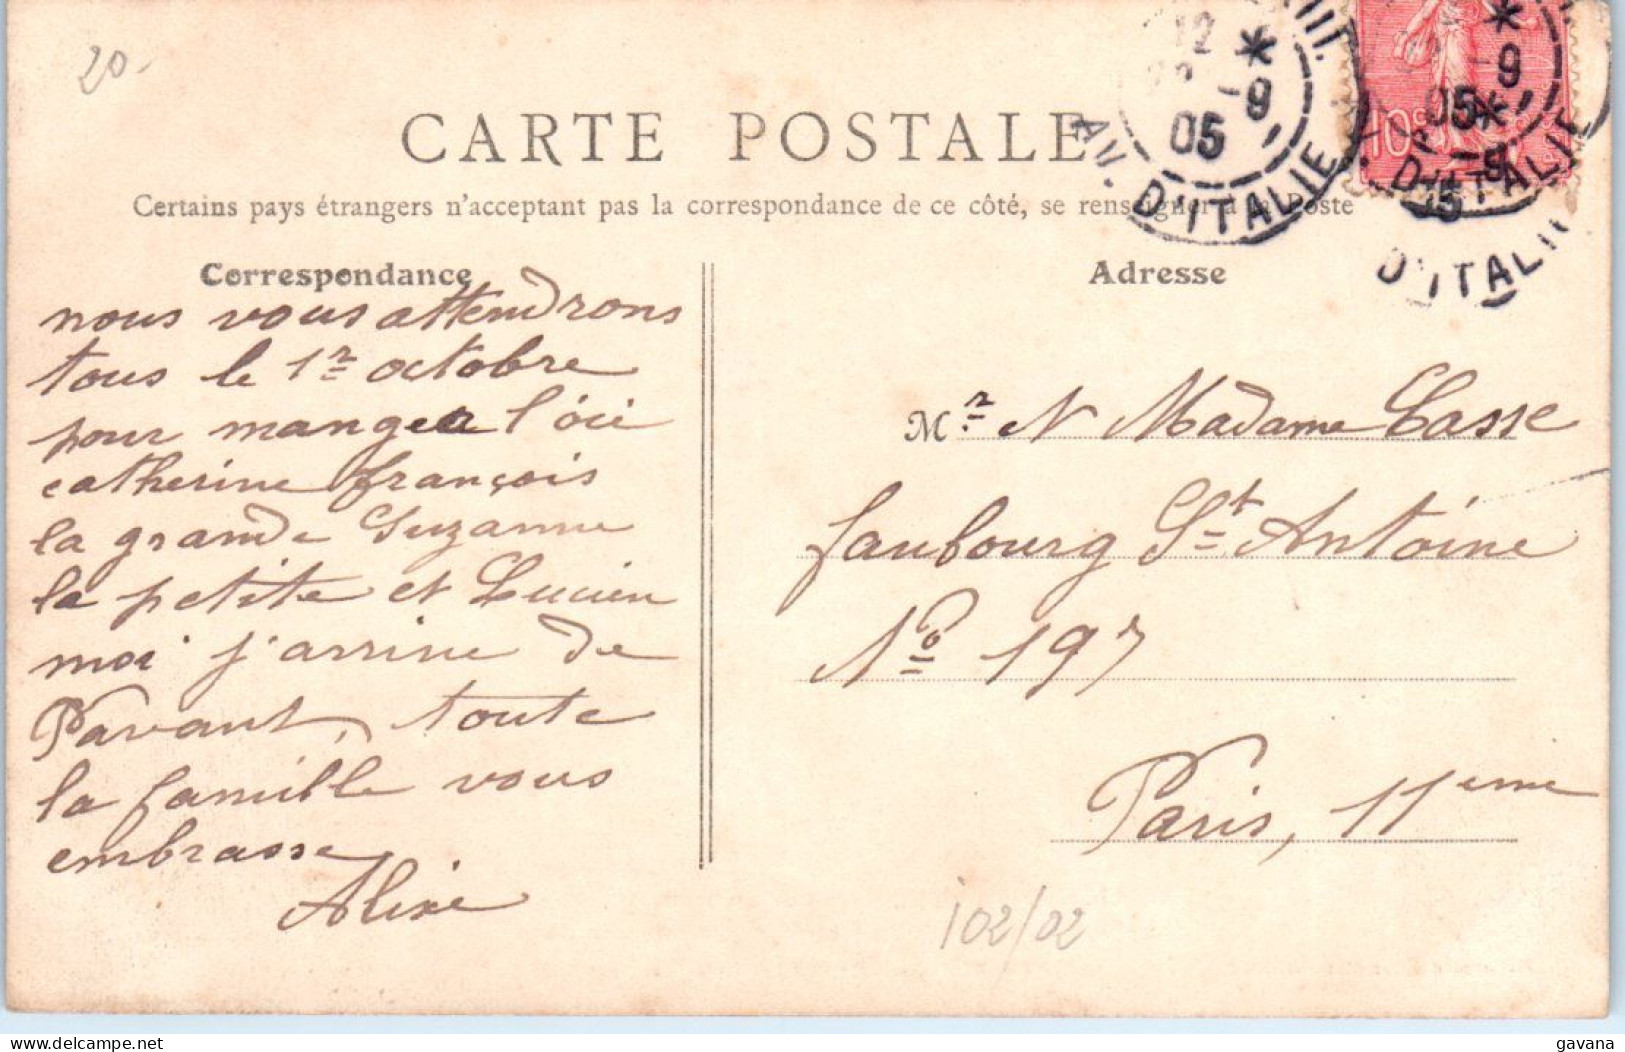 20-
CARTE POSTALE
Certains pays étrangers n'acceptent pas la correspondance de ce côté, se renseigner à la Poste
12 *
-9
05
AV. D'ITALIE
10c
* -9
05
D'ITALIE
* -9
05
D'ITALIE
Correspondance
nous vous attendrons
tous le 1r octobre
pour manger l'oie
catherine françois
la grande Suzanne
la petite et Lucien
moi j'arrive de
Pavant, toute
la famille vous
embrasse
Adresse
Mr N Madame Casse
faubourg St Antoine
No 197
Paris, 11eme
102/02
gavana